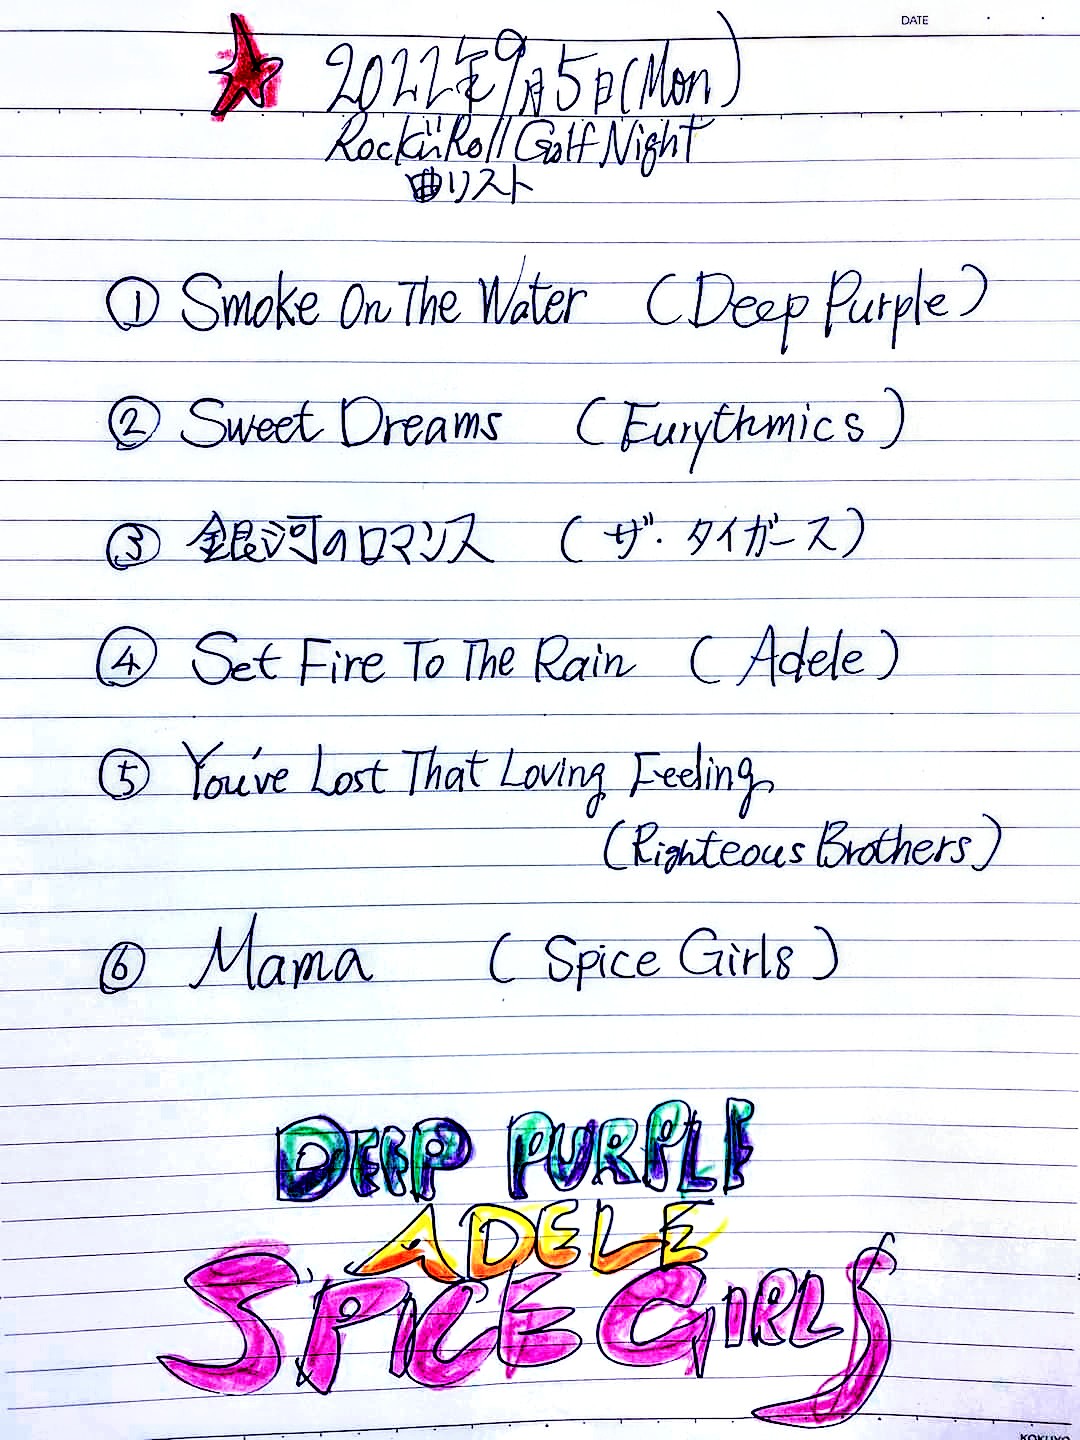 DATE
2022年9月5日(Mon)
Rock'n'Roll Golf Night
曲リスト
① Smoke On The Water (Deep Purple)
② Sweet Dreams (Eurythmics)
③ 銀河のロマンス (ザ・タイガース)
④ Set Fire To The Rain (Adele)
⑤ You've Lost That Loving Feeling
(Righteous Brothers)
⑥ Mama (Spice Girls)
DEEP PURPLE
ADELE
SPICE GIRLS
KOKUYO